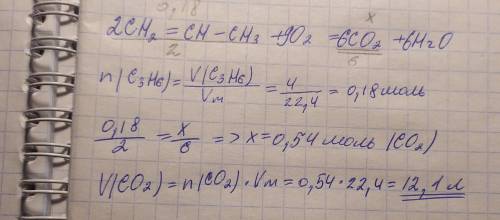 0,18 x
2CH₂ = CH - CH₃ + 9O₂ = 6CO₂ + 6H₂O
2 6
n(C₃H₆) = V(C₃H₆)/Vm = 4/22,4 = 0,18 моль
0,18/2 = x/6 => x = 0,54 моль (CO₂)
V(CO₂) = n(CO₂) · Vm = 0,54 · 22,4 = 12,1 л